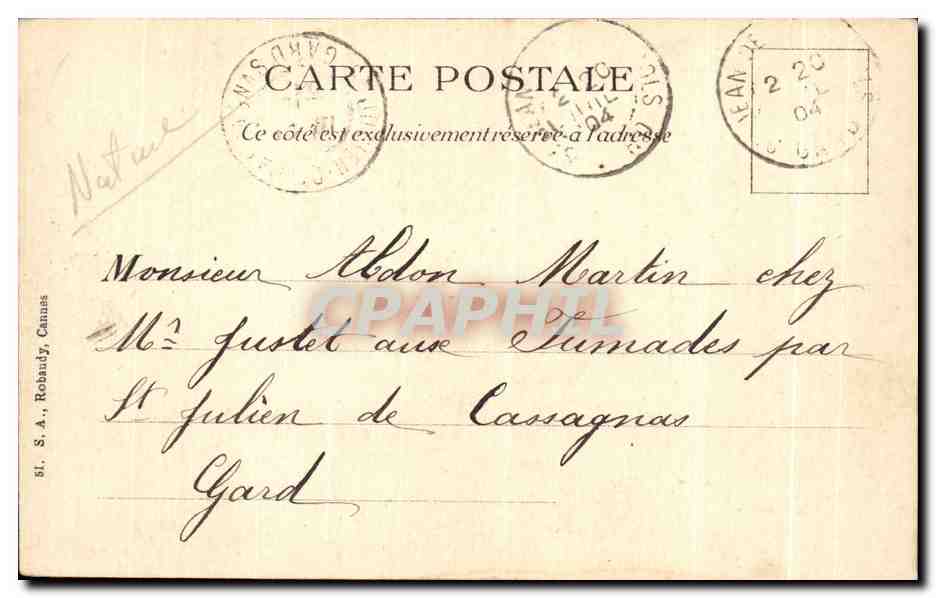 CARTE POSTALE
Ce côté est exclusivement réservé à l'adresse
GARD
JEAN DE
2 20
04
2 20
JUIL
04
Nature
Monsieur Abdon Martin chez
Mr Justet aux Fumades par
St Julien de Cassagnas
Gard
CPAPHIL
51. S. A., Robaudy, Cannes